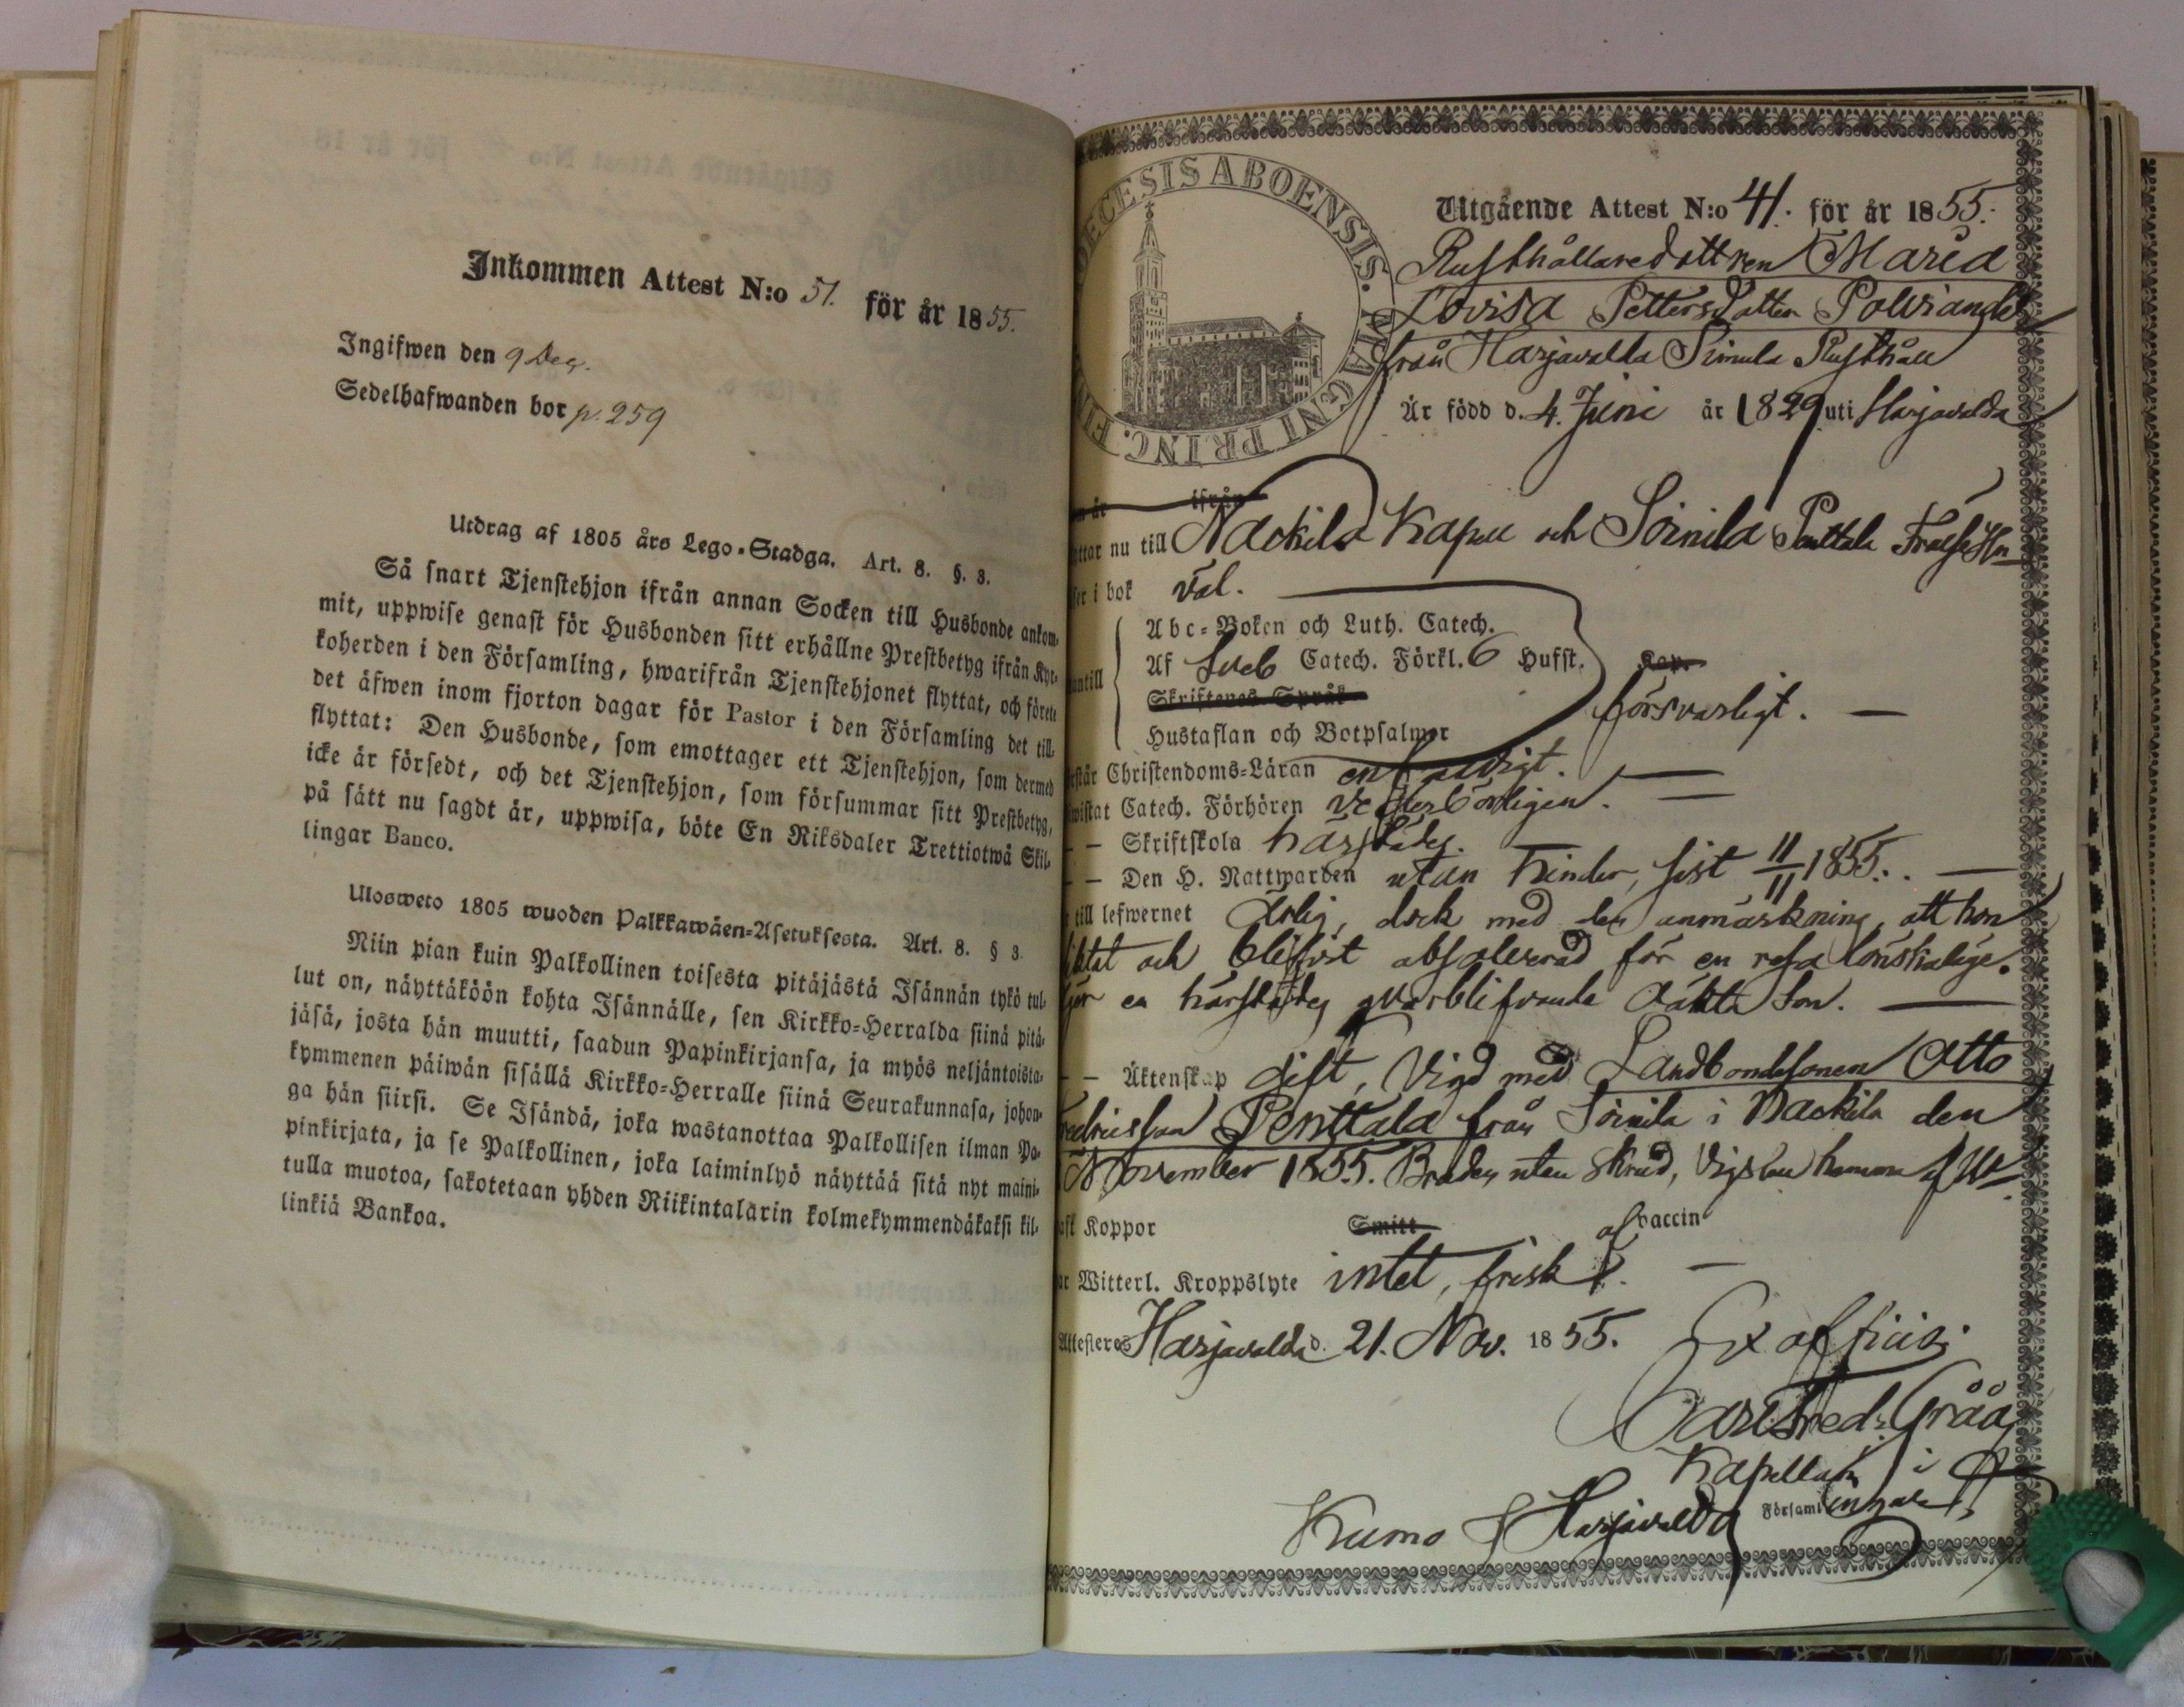 Inkommen Attest N:o 51. för år 1855.
Ingifwen den 9 Dec.
Sedelhafwanden bor p. 259
Utdrag af 1805 års Lego-Stadga. Art. 8. §. 3.
Så snart Tjenstehjon ifrån annan Socken till Husbonde ankom-
mit, uppwise genast för Husbonden sitt erhållne Prestbetyg ifrån Kyr-
koherden i den Församling, hwarifrån Tjenstehjonet flyttat, och förete
det äfwen inom fjorton dagar för Pastor i den Församling det till-
flyttat: Den Husbonde, som emottager ett Tjenstehjon, som dermed
icke är försedt, och det Tjenstehjon, som försummar sitt Prestbetyg,
på sätt nu sagdt är, uppwisa, böte En Riksdaler Trettiotwå Skil-
lingar Banco.
Ulosweto 1805 wuoden Palkkawäen-Asetuksesta. Art. 8. § 3.
Niin pian kuin Palkollinen toisesta pitäjästä Isännän tykö tul-
lut on, näyttäköön kohta Isännälle, sen Kirkko-Herralda siinä pitä-
jäsä, josta hän muutti, saadun Papinkirjansa, ja myös neljäntoista-
kymmenen päiwän sisällä Kirkko-Herralle siinä Seurakunnasa, johon-
ga hän siirsi. Se Isändä, joka wastanottaa Palkollisen ilman Pa-
pinkirjata, ja se Palkollinen, joka laiminlyö näyttää sitä nyt maini-
tulla muotoa, sakotetaan yhden Riikintalarin kolmekymmendäkaksi kil-
linkiä Bankoa.
DECESIS ABOENSIS. MAGNI PRINC. FI
Utgående Attest N:o 41. för år 1855.
Rusthållaredottren Maria
Lovisa Pettersdotter Polviander
från Harjavalda Pirnula Rusthåll
Är född d. 4. Juni år 1829 uti Harjavalda
är ifrån
ttar nu till Nackila Kapell och Soinila Penttala Frälse Hn
ser i bok väl.
Abc-Boken och Luth. Catech.
Af Sveb Catech. Förkl. 6 Hufst. Kap.
untill Skriftenes Språk försvarligt.
Hustaflan och Botpsalmer
rstår Christendoms-Läran enfaldigt.
wistat Catech. Förhören vederbörligen.
- - Skriftskola härstädes.
- - Den H. Nattwarden utan hinder, sist 11/11 1855.
till lefwernet ärlig, dock med den anmärkning, att hon
och blifvit absolverad för en resa lönskaläge.
för en härstädes qvarblifvande oäkta son.
- - Äktenskap gift, Vigd med Landbondesonen Otto
Fredriksson Penttala från Soinila i Nackila den
November 1855. Bruden utan skrud, Vigslen
aft Koppor Smitt af vaccin
ar Witterl. Kroppslyte intet, frisk.
Attesteres Harjavalda d. 21. Nov. 1855.
Ex officio
Carl Fred. Gråå
Kapellan i
Kumo & Harjavalda Församlingar